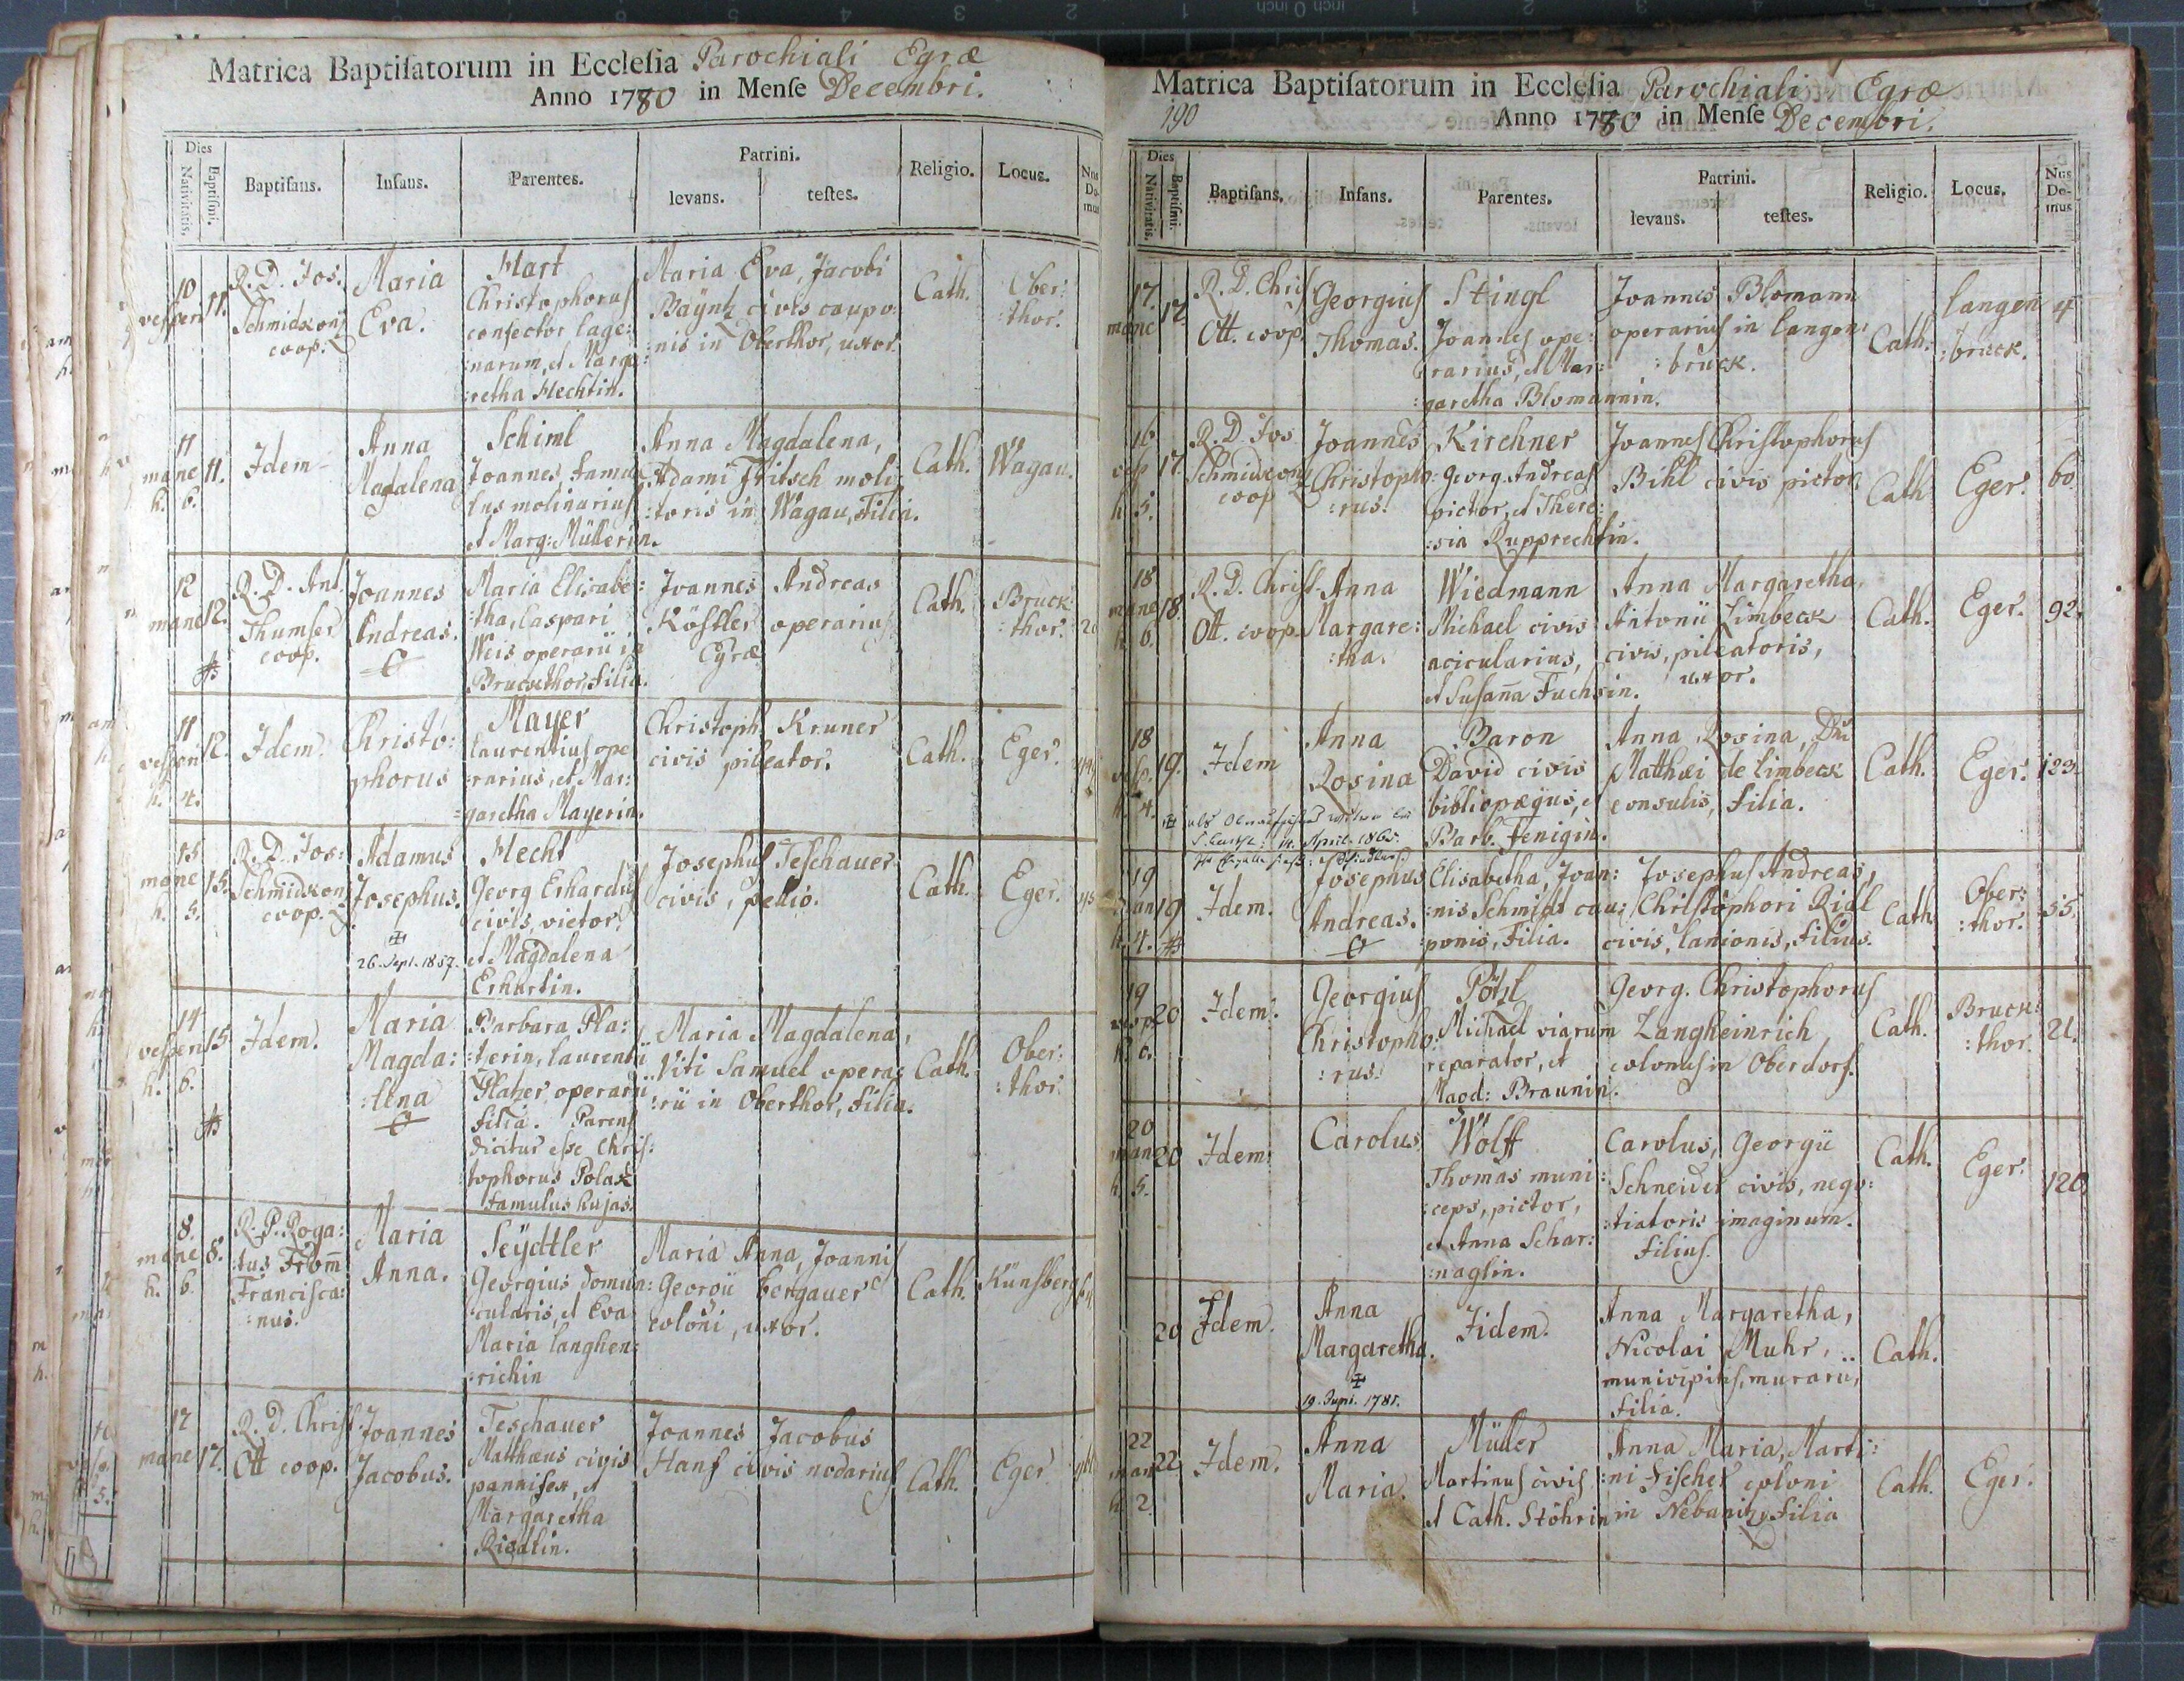 Matrica Baptisatorum in Ecclesia Parochiali Egræ
Anno 1780 in Mense Decembri.
Dies
Nativitatis.
Baptismi.
Baptisans.
Infans.
Parentes.
Patrini.
levans.
testes.
Religio.
Locus.
Nus Domus
10
vesperi
11.
R. D. Jos.
Schmidkonz
coop.
Maria
Eva.
Hart
Christophorus
confector lage:
:narum, et Marga:
:retha Hechtin.
Maria Eva, Jacobi
Bäyntz civis caupo:
:nis in Oberthor, uxor.
Cath.
Ober:
:thor.
11
mane
h. 6.
11.
Idem
Anna
Magdalena
Schiml
Joannes, famu:
lus molinarius
et Marg: Müllerin.
Anna Magdalena,
Adami Fritsch moli
:toris in Wagau, Filia.
Cath.
Wagau.
12
mane
12.
R. D. Ant.
Thumser
coop.
Joannes
Andreas.
Maria Elisabe:
:tha, Caspari
Weis operarii in
Bruckthor, Filia.
Joannes Andreas
Köstler operarius
Egræ
Cath.
Bruck
:thor.
11
vesperi
h. 4.
12.
Idem.
Christo:
phorus
Mayer
Laurentius ope
:rarius, et Mar:
:garetha Mayerin.
Christoph Kruner
civis pileator.
Cath.
Eger.
15
mane
h. 5.
15.
R. D. Jos:
Schmidkonz
coop.
Adamus
Josephus.
26. Sept. 1857.
Hecht
Georg Erhardus
civis, victor,
et Magdalena
Erhartin.
Josephus Teschauer
civis, pellio.
Cath.
Eger.
14
vesperi
h. 6.
15.
Idem.
Maria
Magda:
:lena
Barbara Pla:
:tzerin, Laurentii
Platzer operarii
Filia. Parens
dicitur esse Chris:
tophorus Polak
famulus hujas.
Maria Magdalena,
Viti Samuel opera:
:rii in Oberthor, Filia.
Cath.
Ober:
:thor.
8.
mane
h. 6.
8.
R. P. Roga:
:tus From
Francisca:
:nus.
Maria
Anna.
Seydtler
Georgius domun:
:cularis, et Eva
Maria Langhen:
:richin
Maria Anna, Joannis
Georgii Bergauer
coloni, uxor.
Cath.
Künsberg
17
mane
17.
R. D. Christ
Ott coop.
Joannes
Jacobus.
Teschauer
Matthæus civis
pannifex, et
Margaretha
Riedlin.
Joannes Jacobus
Hanf civis nodarius
Cath.
Eger.
Matrica Baptisatorum in Ecclesia Parochiali Egræ
190
Anno 1780 in Mense Decembri.
Dies
Nativitatis.
Baptismi.
Baptisans.
Infans.
Parentes.
Patrini.
levans.
testes.
Religio.
Locus.
Nus Domus
17.
mane
17.
R. D. Chris
Ott. coop.
Georgius
Thomas.
Stingl
Joannes ope:
:rarius, et Mar:
:garetha Blomannin.
Joannes Blomann
operarius in Langen:
:bruck.
Cath.
Langen
:bruck.
4
16
vesp
h. 5.
17.
R. D. Jos
Schmidkonz
coop
Joannes
Christopho:
:rus.
Kirchner
Georg. Andreas
pictor, et There:
:sia Rupprechtin.
Joannes Christophorus
Bihl civis pictor
Cath.
Eger.
60
18
mane
h. 6.
18.
R. D. Christ.
Ott. coop.
Anna
Margare:
:tha.
Wiedmann
Michael civis
acicularius,
et Susaña Fuchsin.
Anna Margaretha,
Antonii Limbeck
civis, pileatoris,
uxor.
Cath.
Eger.
92.
18
vesp.
h. 4.
19.
Idem
Anna
Rosina
14. April. 1865.
Baron
David civis
bibliopægus, et
Barb. Fenigin.
Anna Rosina, Dñi
Matthæi de Limbeck
consulis, Filia.
Cath.
Eger.
123.
19
man
h. 4.
19
Idem.
Josephus
Andreas.
Elisabetha, Joan:
:nis Schmidt cau:
ponis, Filia.
Josephus Andreas,
Christophori Ridl
civis, lanionis, Filius.
Cath
Ober:
:thor.
55.
19
vesp
20
Idem.
Georgius
Christopho:
:rus.
Pötzl
Michael viarum
reparator, et
Magd: Braunin.
Georg. Christophorus
Langheinrich
colonus in Oberdorf.
Cath.
Bruck:
:thor.
21.
20
mane
h. 5.
20
Idem.
Carolus
Wolff
Thomas muni
:ceps, pictor,
et Anna Schar:
:naglin.
Carolus, Georgii
Schneider civis, nego:
:tiatoris imaginum.
Filius.
Cath.
Eger.
120.
20
Idem.
Anna
Margaretha.
19. Juni. 1781.
Iidem.
Anna Margaretha,
Nicolai Muhr,
municipius, murarii,
Filia.
Cath.
22
man
h. 2.
22.
Idem.
Anna
Maria.
Müller
Martinus civis
et Cath. Stöhrin
Anna Maria, Marti:
:ni Fischer coloni
in Nebanitz, Filia
Cath.
Eger.